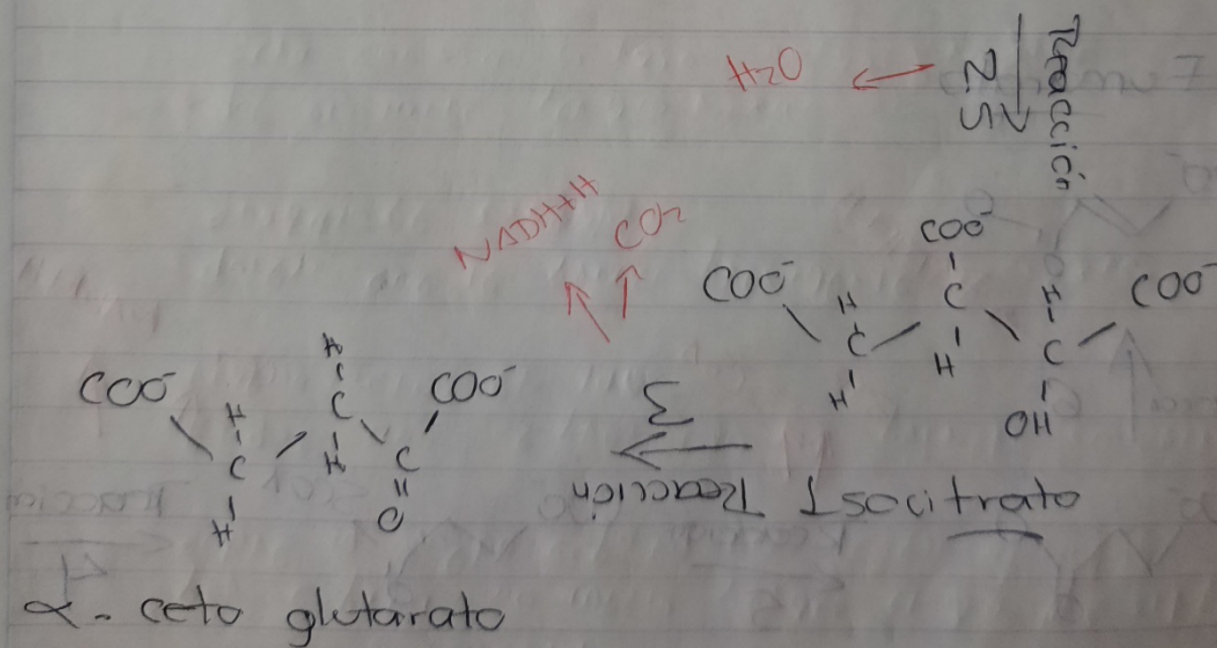 Reacción
2.5
H2O
NADH+H
CO2
COO-
COO-
COO-
H
C
H
C
H
H
C
OH
Isocitrato
Reacción
3
COO-
COO-
H
C
H
H
C
H
C
O
α- ceto glutarato